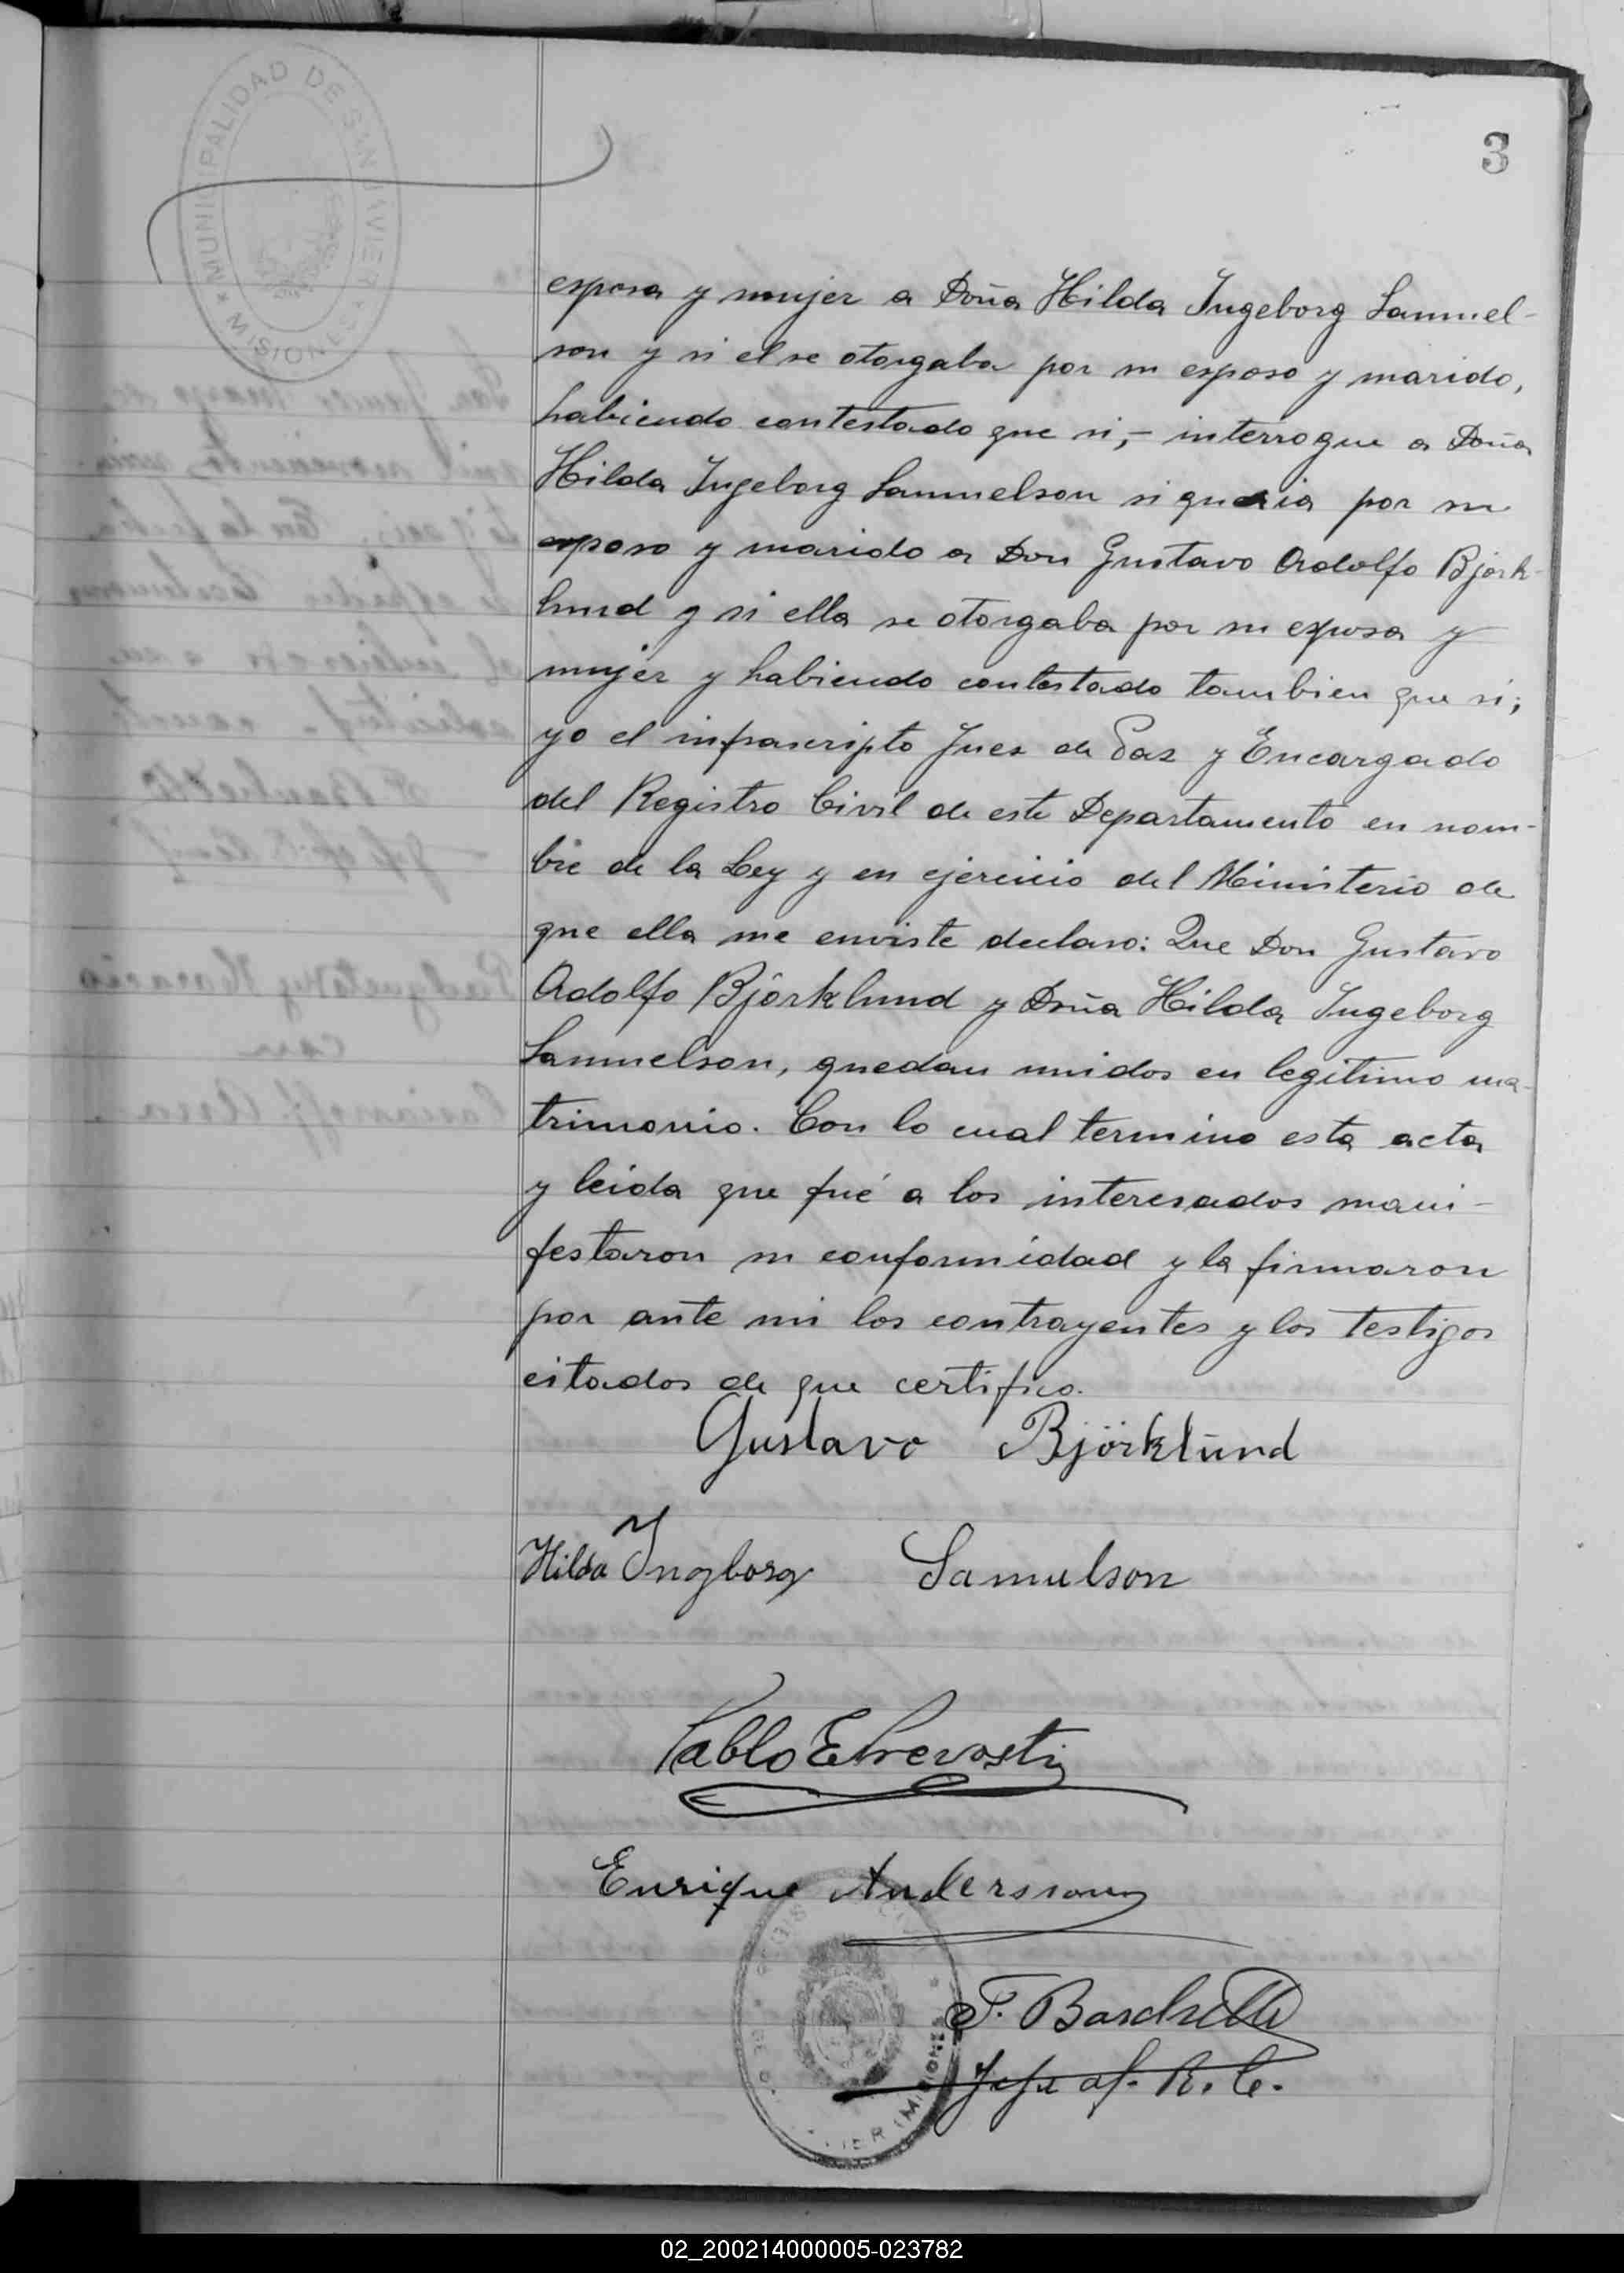 MUNICIPALIDAD DE SAN JAVIER
MISIONES
3
esposa y mujer a Doña Hilda Ingeborg Samuel-
son y si el se otorgaba por su esposo y marido,
habiendo contestado que si,- interrogue a Doña
Hilda Ingeborg Samuelson si queria por su
esposo y marido a Don Gustavo Adolfo Bjork-
lund y si ella se otorgaba por su esposa y
mujer y habiendo contestado tambien que si;
yo el infrascripto Juez de Paz y Encargado
del Registro Civil de este Departamento en nom-
bre de la Ley y en ejercicio del Ministerio de
que ella me enviste declaro: Que Don Gustavo
Adolfo Björklund y Doña Hilda Ingeborg
Samuelson, quedan unidos en legitimo ma-
trimonio. Con lo cual termino esta acta
y leida que fué a los interesados mani-
festaron su conformidad y la firmaron
por ante mi los contrayentes y los testigos
citados de que certifico.
Gustavo Björklund
Hilda Ingborg Samulson
Pablo E Prevosti
Enrique Andersson
Jefe of. R. C.
02_200214000005-023782